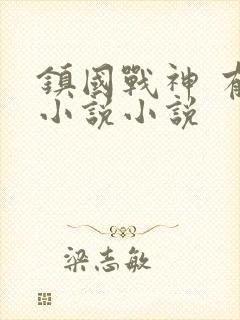 鎮國戰神 有
小說小說
梁志敏